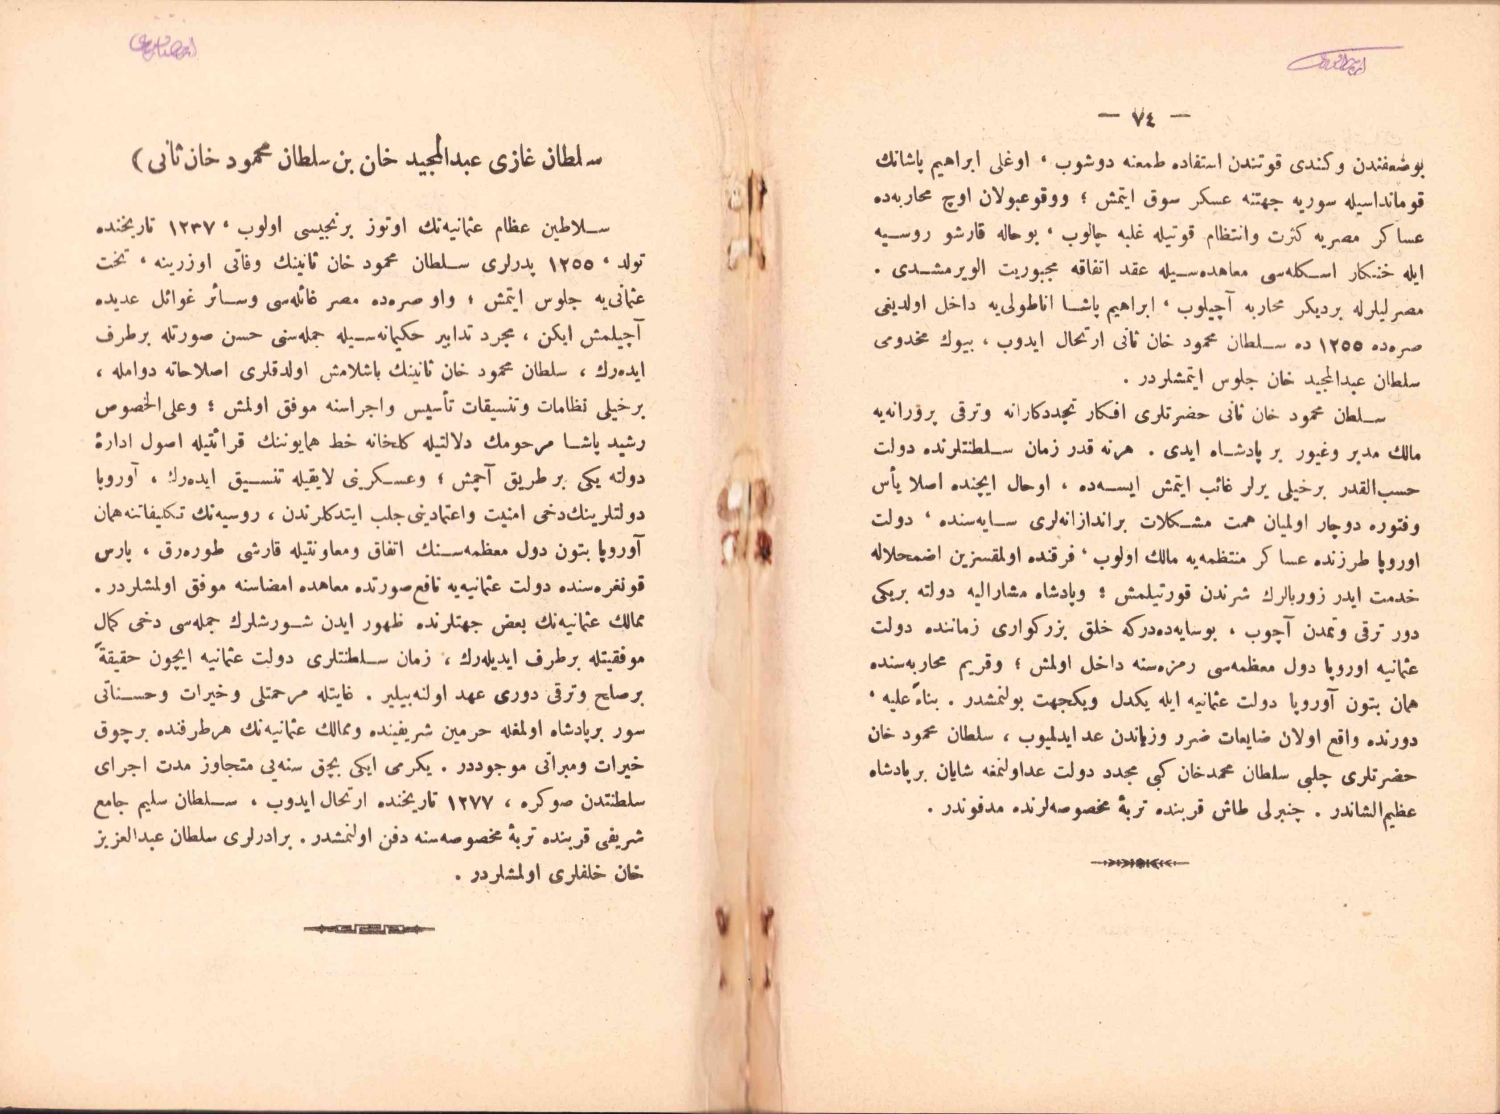 — ٧٤ —
بوضعفندن وكندی قوتندن استفاده طمعنه دوشوب ، اوغلی ابراهیم پاشانك
قومانداسیله سوریه جهتنه عسكر سوق ایتمش ؛ ووقوعبولان اوچ محاربه‌ده
عساكر مصریه كثرت وانتظام قوتیله غلبه چالوب ، بوحاله قارشو روسیه
ایله خنكار اسكله‌سی معاهده‌سیله عقد اتفاقه مجبوریت الویرمشدی .
مصرلیلرله بردیكر محاربه آچیلوب ، ابراهیم پاشا اناطولی‌یه داخل اولدیغی
صره‌ده ١٢٥٥ ده سلطان محمود خان ثانی ارتحال ایدوب ، بیوك مخدومی
سلطان عبدالمجید خان جلوس ایتمشلردر .
سلطان محمود خان ثانی حضرتلری افكار تجددكارانه وترقی پرورانه‌یه
مالك مدبر وغیور بر پادشاه ایدی . هرنه قدر زمان سلطنتلرنده دولت
حسب‌القدر برخیلی یرلر غائب ایتمش ایسه‌ده ، اوحال ایچنده اصلا یأس
وفتوره دوچار اولمیان همت مشكلات براندازانه‌لری سایه‌سنده ، دولت
اوروپا طرزنده عساكر منتظمه‌یه مالك اولوب ، فرقنده اولمقسزین اضمحلاله
خدمت ایدر زوربالرك شرندن قورتیلمش ؛ وپادشاه مشارالیه دولته بریكی
دور ترقی وتمدن آچوب ، بوسایه‌ده‌دركه خلق بزركواری زماننده دولت
عثمانیه اوروپا دول معظمه‌سی رمزه‌سنه داخل اولمش ؛ وقریم محاربه‌سنده
همان بتون آوروپا دولت عثمانیه ایله یكدل ویكجهت بولنمشدر . بناءً علیه ،
دورنده واقع اولان ضایعات ضرر وزیاندن عد ایدلمیوب ، سلطان محمود خان
حضرتلری چلبی سلطان محمدخان كبی مجدد دولت عداولنمغه شایان برپادشاه
عظیم‌الشاندر . چنبرلی طاش قربنده تربهٔ مخصوصه‌لرنده مدفوندر .
سلطان غازی عبدالمجید خان بن سلطان محمود خان ثانی )
سلاطین عظام عثمانیه‌نك اوتوز برنجیسی اولوب ، ١٢٣٧ تاریخنده
تولد ، ١٢٥٥ پدرلری سلطان محمود خان ثانینك وفاتی اوزرینه ، تخت
عثمانی‌یه جلوس ایتمش ؛ واو صره‌ده مصر غائله‌سی وسائر غوائل عدیده
آچیلمش ایكن ، مجرد تدابیر حكیمانه‌سیله جمله‌سنی حسن صورتله برطرف
ایده‌رك ، سلطان محمود خان ثانینك باشلامش اولدقلری اصلاحاته دوامله ،
برخیلی نظامات وتنسیقات تأسیس واجراسنه موفق اولمش ؛ وعلی‌الخصوص
رشید پاشا مرحومك دلالتیله كلخانه خط همایوننك قرائتیله اصول ادارهٔ
دولته یكی بر طریق آچمش ؛ وعسكرینی لایقیله تنسیق ایده‌رك ، آوروپا
دولتلرینك‌دخی امنیت واعتمادینی جلب ایتدكلرندن ، روسیه‌نك تكلیفاتنه همان
آوروپا بتون دول معظمه‌سنك اتفاق ومعاونتیله قارشی طوره‌رق ، پارس
قونغره‌سنده دولت عثمانیه‌یه نافع صورتده معاهده امضاسنه موفق اولمشلردر .
ممالك عثمانیه‌نك بعض جهتلرنده ظهور ایدن شورشلرك جمله‌سی دخی كمال
موفقیتله برطرف ایدیله‌رك ، زمان سلطنتلری دولت عثمانیه ایچون حقیقةً
برصلح وترقی دوری عهد اولنه‌بیلیر . غایتله مرحمتلی وخیرات وحسناتی
سور برپادشاه اولمغله حرمین شریفینده وممالك عثمانیه‌نك هرطرفنده برچوق
خیرات ومبراتی موجوددر . یكرمی ایكی بچق سنه‌یی متجاوز مدت اجرای
سلطنتدن صوكره ، ١٢٧٧ تاریخنده ارتحال ایدوب ، سلطان سلیم جامع
شریفی قربنده تربهٔ مخصوصه‌سنه دفن اولنمشدر . برادرلری سلطان عبدالعزیز
خان خلفلری اولمشلردر .